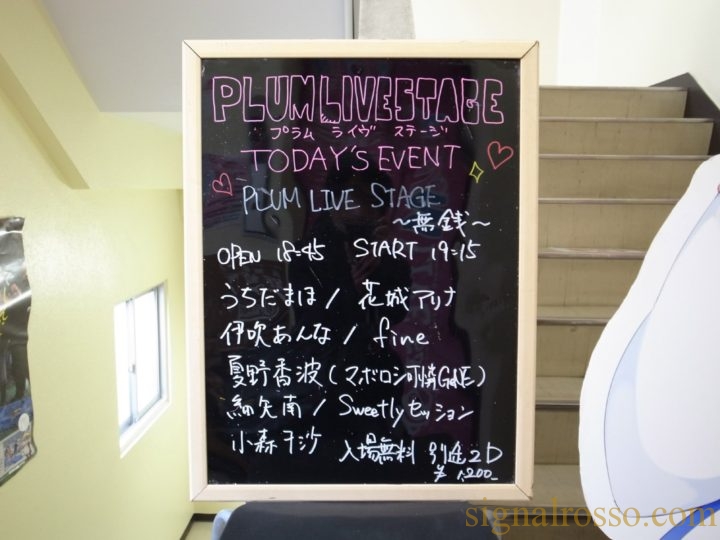 PLUM LIVE STAGE
プラム ライヴ ステージ
TODAY'S EVENT
PLUM LIVE STAGE
〜無銭〜
OPEN 18:45 START 19:15
うちだまほ / 花城アリナ
伊吹あんな / fine
夏野香波 (マボロシ可憐GeNE)
細矢南 / Sweetlyセッション
小森 沙
入場無料 別途2D
¥1,200-
signalrosso.com